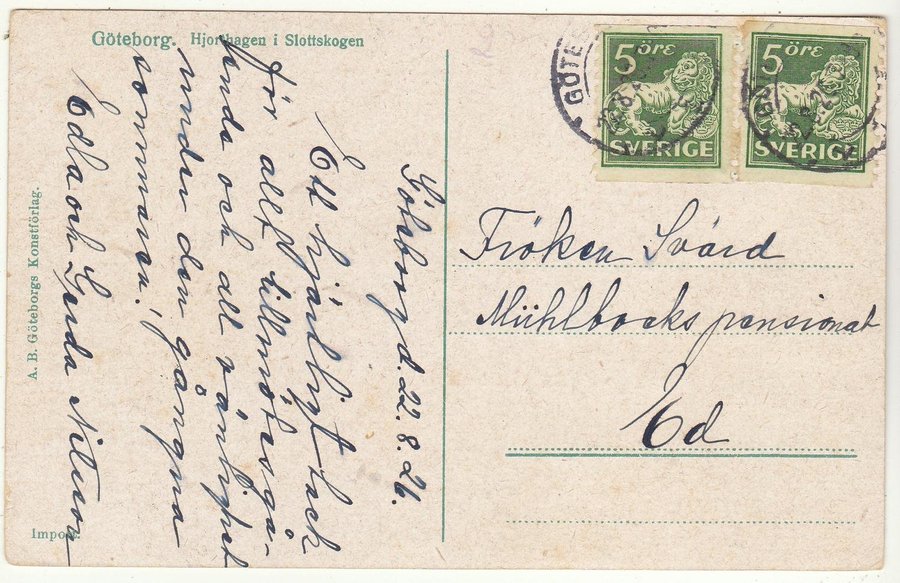 Göteborg. Hjorthagen i Slottskogen
Göteborg d. 22. 8. 26.
Ett hjärtligt tack
för allt tillmötesgå-
ende och all vänlighet
under den gångna
sommaren,
Edla och Gerda Nilsson
A. B. Göteborgs Konstförlag.
Import.
5 ÖRE
SVERIGE
5 ÖRE
SVERIGE
Fröken Svärd
Mühlbocks pensionat
Ed